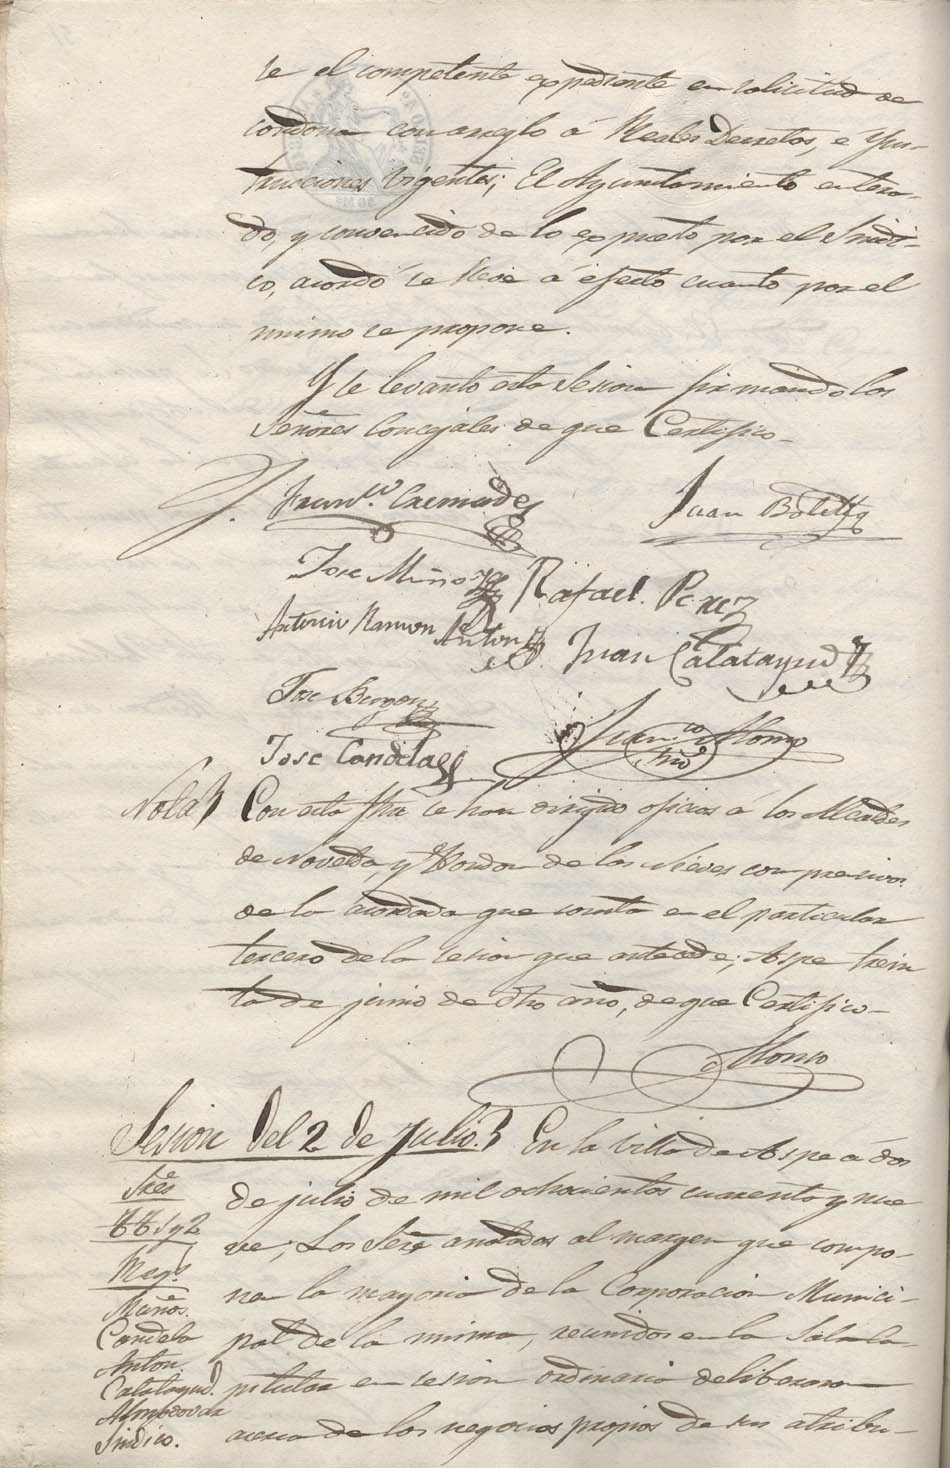 se el competente expediente en solicitud de
condona con arreglo á Reales Decretos, é Yns-
trucciones vigentes; El Ayuntamiento entera-
do, y convencido de lo expuesto por el Sindi-
co, acordó se lleve á efecto cuanto por el
mismo se propone.
Y se levantó esta Sesion firmando los
Señores Concejales de que Certifico_
Franco. Cremades
Juan Botella
Jose Muñoz
Rafael Perez
Antonio Ramon Anton
Juan Calatayud
Jose
Jose Candela
Juan Alonso
Srio
Nota
Con esta fha se han dirigido oficios á los Alcaldes
de Novelda, y Hondon de las Nieves comprensivos
de lo acordado que consta en el particular
tercero de la sesion que antecede; Aspe trein
ta de junio de dho año, de que Certifico_
Alonso
Sesion del 2 de Julio.
En la Villa de Aspe á dos
Sres
de julio de mil ochocientos cuarenta y nue
TT. 1 y 2
ve; Los Sers. anotados al margen que compo-
Regs.
nen la mayoria de la Corporacion Munici-
Muños.
pal de la misma, reunidos en la Sala Ca-
Candela
Anton.
Calatayud.
pitular en sesion ordinaria deliberaron
Almodovar
Sindico.
acerca de los negocios propios de sus atribu-